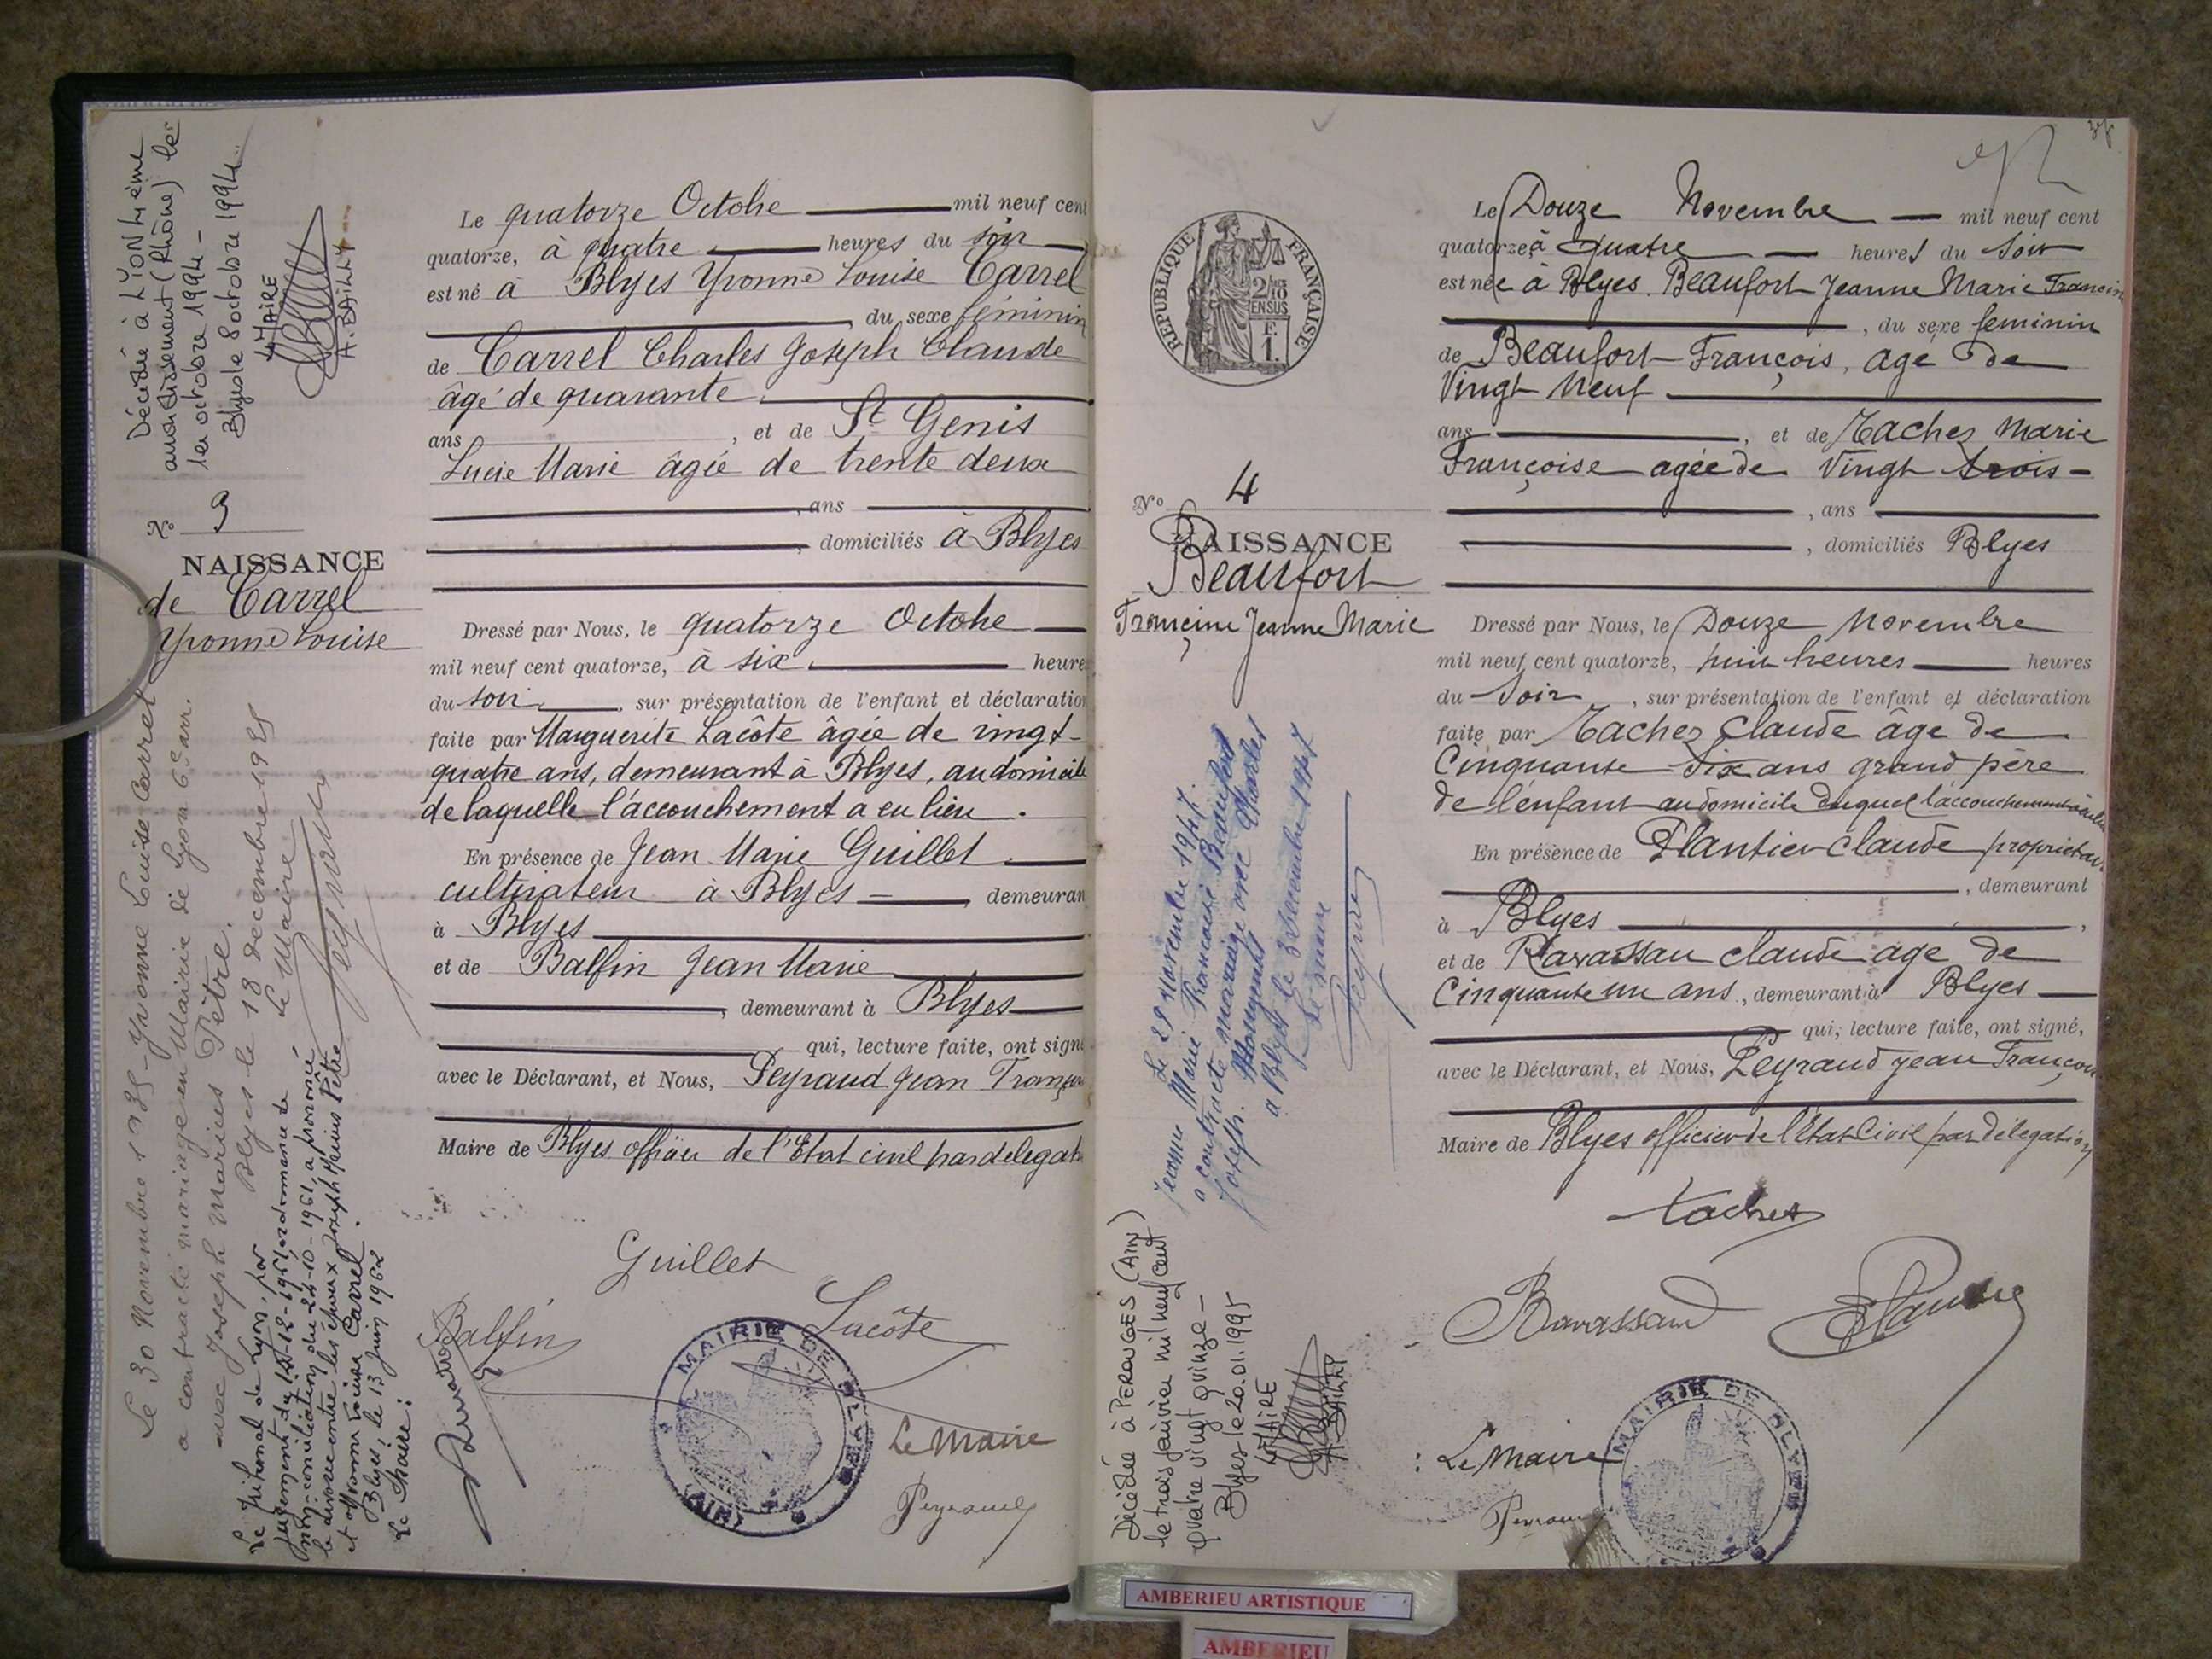 Décédée à LYON 4ième
arrondissement (Rhône) le
1er octobre 1994 -
Blyes le 8 octobre 1994
LE MAIRE
A. BAILLY
N° 3
NAISSANCE
de Carrel
Yvonne Louise
Le 30 Novembre 1935 Yvonne Louise Carrel
a contracté mariage en Mairie de Lyon 6e arr.
avec Joseph Marius Pètre.
Blyes le 18 décembre 1935
Le Maire
Le Tribunal de Lyon, par
jugement du 14-12-1961, ordonnance de
non-conciliation du 24-10-1961, a prononcé
le divorce entre les époux Joseph Marius Pètre
et Yvonne Louise Carrel.
Blyes, le 13 Juin 1962
Le Maire :
Le quatorze Octobre mil neuf cent
quatorze, à quatre heures du soir
est né à Blyes Yvonne Louise Carrel
, du sexe féminin
de Carrel Charles Joseph Claude
âgé de quarante
ans , et de St Genis
Lucie Marie âgée de trente deux
, ans
, domiciliés à Blyes
Dressé par Nous, le quatorze Octobre
mil neuf cent quatorze, à six heure
du soir , sur présentation de l'enfant et déclaration
faite par Marguerite Lacôte âgée de vingt-
quatre ans, demeurant à Blyes, au domicile
de laquelle l'accouchement a eu lieu.
En présence de Jean Marie Guillet
cultivateur à Blyes , demeuran
à Blyes
et de Balfin Jean Marie
, demeurant à Blyes
qui, lecture faite, ont signé
avec le Déclarant, et Nous, Peyraud Jean François
Maire de Blyes officier de l'Etat civil par delegat
Guillet
Balfin Lacôte
MAIRIE DE BLYES (AIN)
Le Maire
Peyraud
RÉPUBLIQUE FRANÇAISE
2/10 EN SUS
F. 1.
N° 4
NAISSANCE
Beaufort
Françine Jeanne Marie
Le 29 Novembre 1947.
Jeanne Marie Francoise Beaufort
a contracté mariage avec Charles
Joseph.
a Blyes le 3 Décembre 1947
Le maire
Décédée à PEROUGES (AIN)
le trois janvier mil neuf cent
quatre vingt quinze -
Blyes le 20.01.1995
LE MAIRE
A. BAILLY
Le Douze Novembre mil neuf cent
quatorze, à quatre heures du soir
est née à Blyes Beaufort Jeanne Marie Francin
, du sexe feminin
de Beaufort François, agé de
Vingt Neuf
ans , et de Taches Marie
Françoise agée de Vingt trois -
, ans
, domiciliés Blyes
Dressé par Nous, le Douze Novembre
mil neuf cent quatorze, huit heures heures
du Soir , sur présentation de l'enfant et déclaration
faite par Taches Claude âge de
Cinquante Six ans grand père
de l'enfant au domicile duquel l'accouchement a eu lieu
En présence de Plantier Claude proprietai.
, demeurant
à Blyes ,
et de Ravassau claude age de
Cinquante un ans , demeurant à Blyes
qui, lecture faite, ont signé,
avec le Déclarant, et Nous, Peyraud jean Françoi
Maire de Blyes officier de l'Etat Civil par délegation
taches
Ravassaud
Le Maire
MAIRIE DE BLYES
AMBERIEU ARTISTIQUE
AMBERIEU